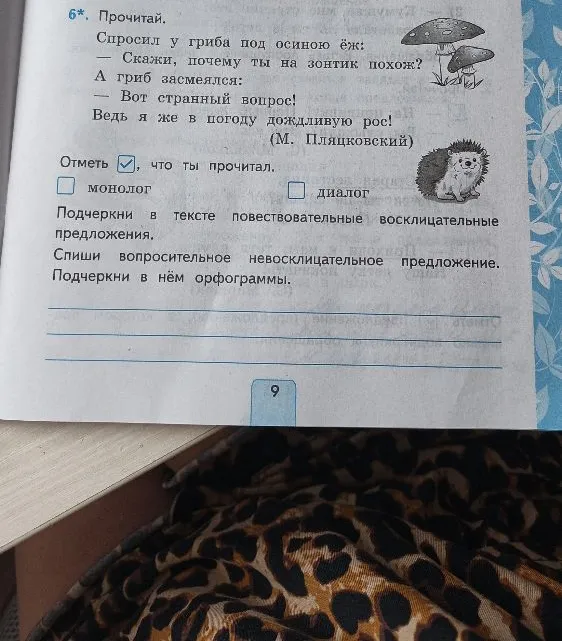 6*. Прочитай.
Спросил у гриба под осиною ёж:
— Скажи, почему ты на зонтик похож?
А гриб засмеялся:
— Вот странный вопрос!
Ведь я же в погоду дождливую рос!
(М. Пляцковский)
Отметь ✓, что ты прочитал.
монолог
диалог
Подчеркни в тексте повествовательные восклицательные
предложения.
Спиши вопросительное невосклицательное предложение.
Подчеркни в нём орфограммы.
9